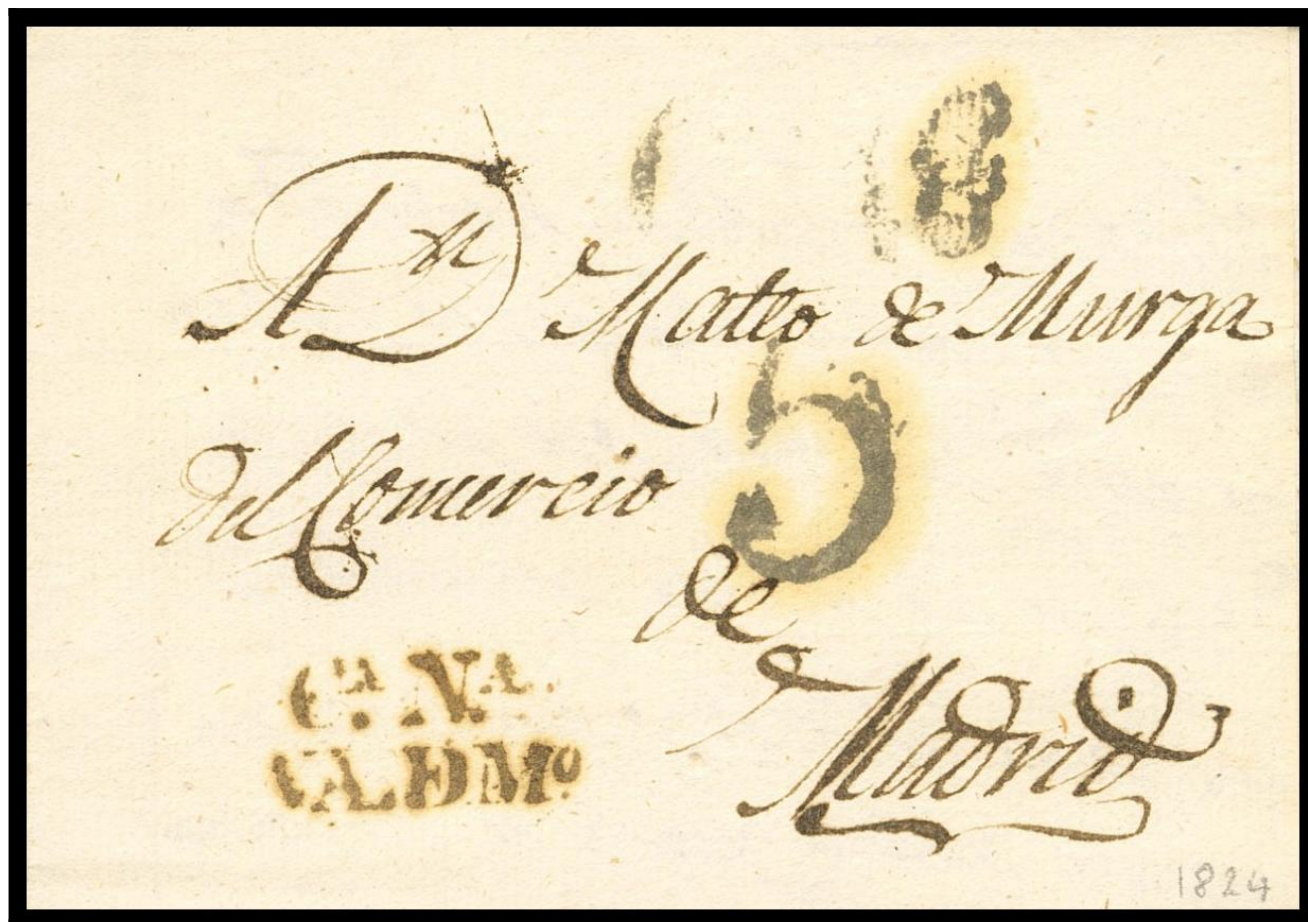 A Dn Mateo de Murga
5
del Comercio
de
Madrid
CA. NA.
VA. D MO
1824